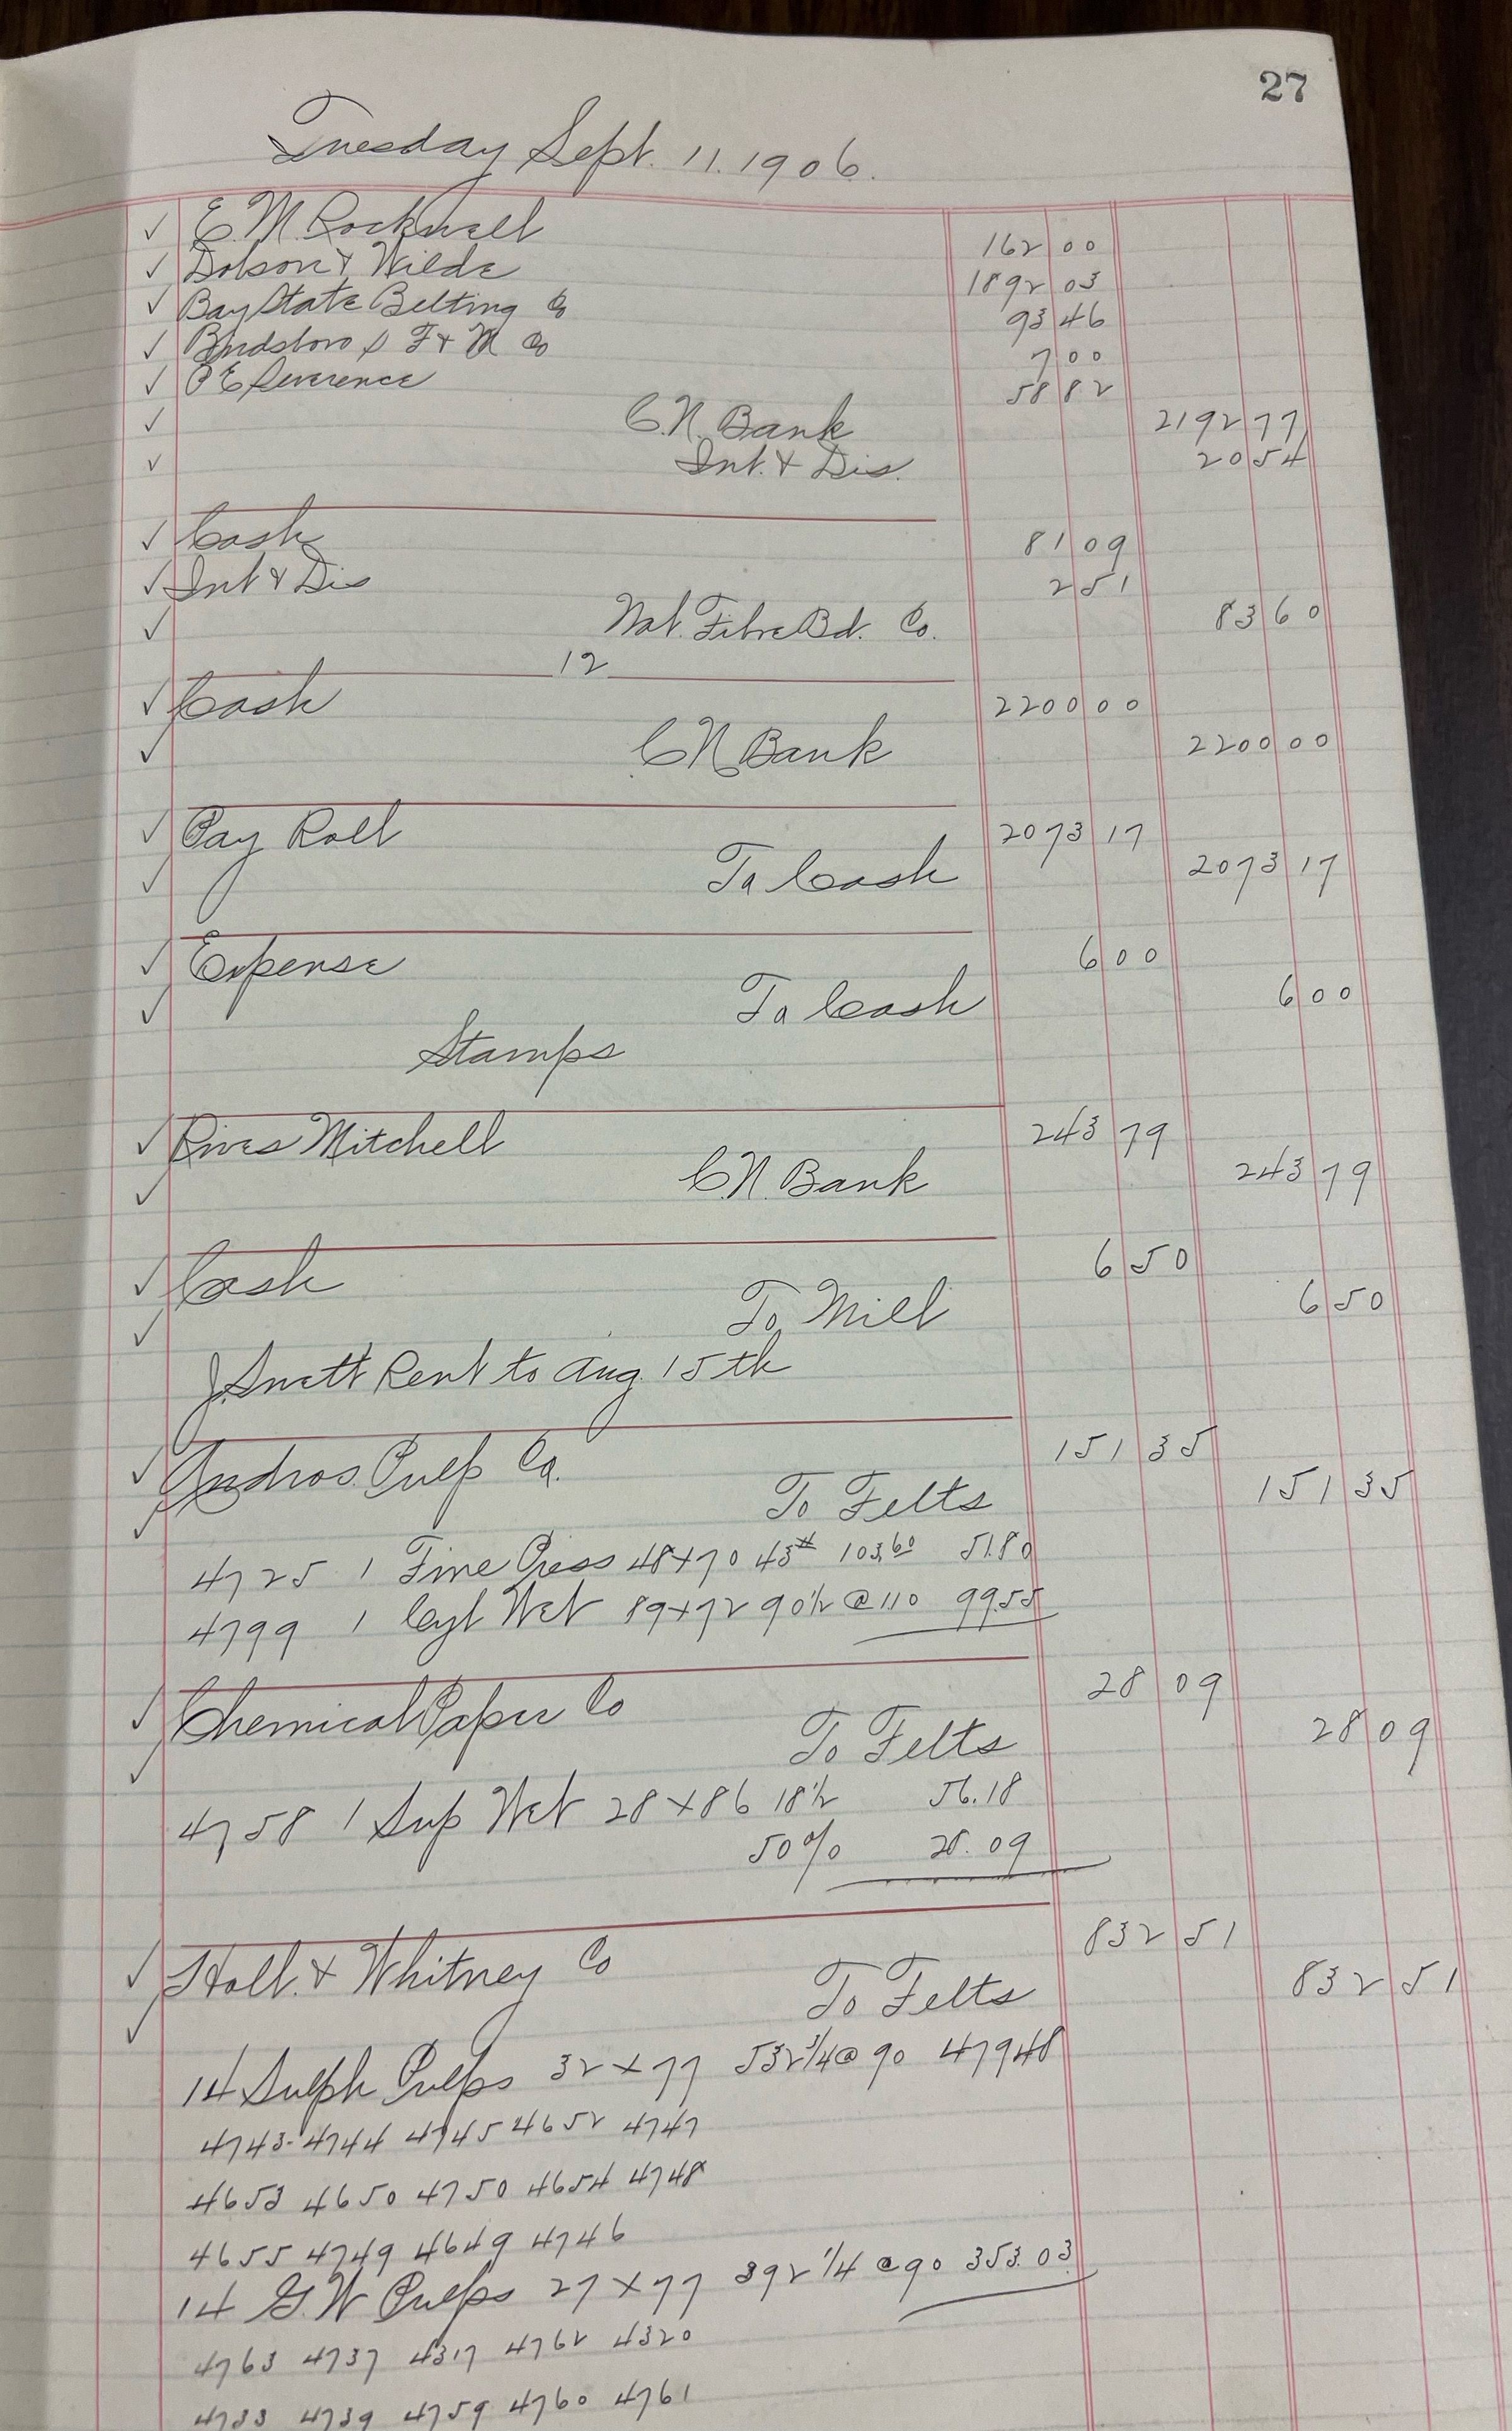 27
Tuesday Sept. 11. 1906.
✓ E. M. Rockwell 162 00
✓ Dobson & Wilde 1892 03
✓ Bay State Belting Co 93 46
✓ Birdsboro S F & M Co 7 00
✓ P E Severence 58 82
✓ C. N. Bank 2192 77
✓ Int. & Dis. 20 54
✓ Cash 81 09
✓ Int & Dis 2 51
✓ Nat. Fibre Bd. Co. 83 60
12
✓ Cash 2200 00
✓ C N Bank 2200 00
✓ Pay Roll 2073 17
✓ To Cash 2073 17
✓ Expense 6 00
✓ To Cash 6 00
Stamps
✓ Rives Mitchell 243 79
✓ C. N. Bank 243 79
✓ Cash 6 50
✓ To Mill 6 50
J. Rent to Aug. 15th
✓ Andros. Pulp Co. 151 35
✓ To Felts 151 35
4725 1 Fine Press 48 x 70 43# 103.60 51.80
4799 1 Cyl Wet 89 x 72 90 1/2 @ 1.10 99.55
✓ Chemical Paper Co 28 09
✓ To Felts 28 09
4758 1 Sup Wet 28 x 86 18 1/2 56.18
50% 28.09
✓ Holl. & Whitney Co 832 51
✓ To Felts 832 51
14 Sulph Pulps 32 x 77 532 3/4 @ 90 479 48
4743- 4744 4745 4652 4747
4653 4650 4750 4654 4748
4655 4749 4649 4746
14 G. W Pulps 27 x 77 392 1/4 @ 90 353.03
4763 4737 4317 4762 4320
4733 4739 4759 4760 4761